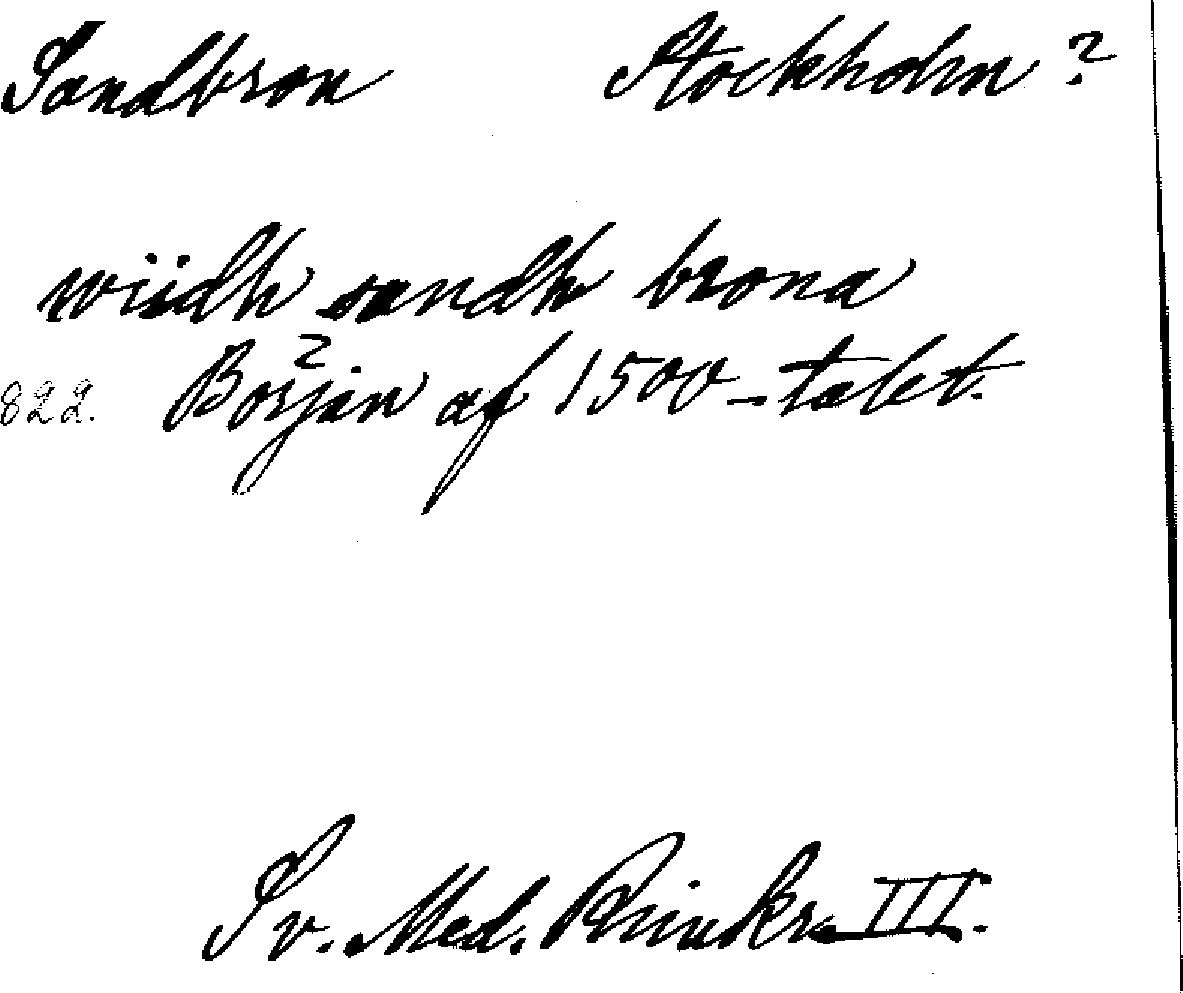 Sandbron Stockholm?
wiidh sandh brona
822. Början af 1500-talet.
Sv. Med. Rimkr. III.